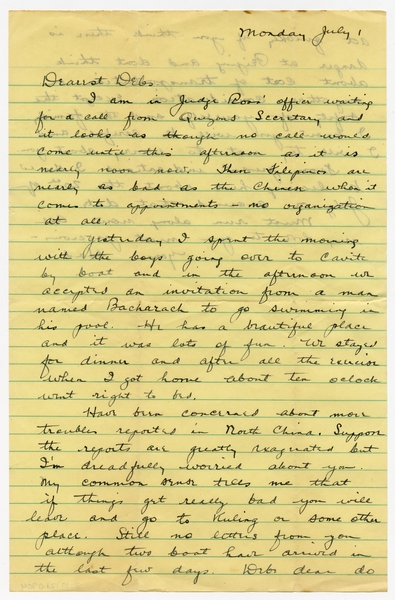 Monday July 1
Dearest Debs
I am in Judge Ross' office waiting
for a call from Quezons Secretary and
it looks as though no call would
come until this afternoon as it is
nearly noon now. These Filipinos are
nearly as bad as the Chinese when it
comes to appointments - no organization
at all.
Yesterday I spent the morning
with the boys going over to Cavite
by boat and in the afternoon we
accepted an invitation from a man
named Bacharach to go swimming in
his pool. He has a beautiful place
and it was lots of fun. We stayed
for dinner and after all the exercise
when I got home about ten oclock
went right to bed.
Have been concerned about more
troubles reported in North China. Suppose
the reports are greatly exagerated but
I'm dreadfully worried about you.
My common sense tells me that
if things get really bad you will
leave and go to Kuling or some other
place. Still no letters from you
although two boat have arrived in
the last few days. Debs dear do